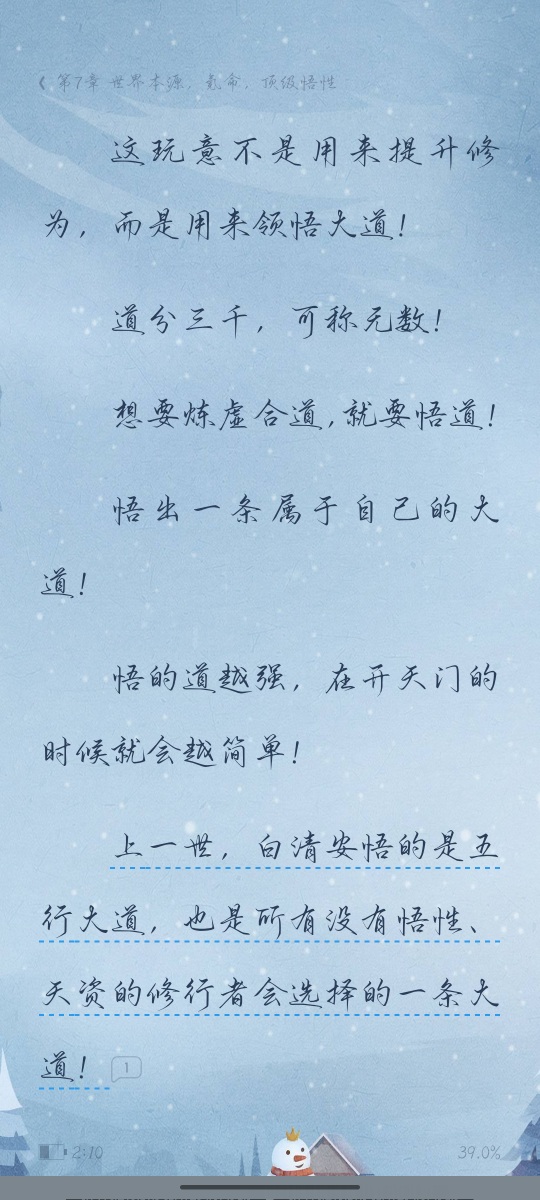 第7章 世界本源，氪命，顶级悟性
这玩意不是用来提升修
为，而是用来领悟大道！
道分三千，可称无数！
想要炼虚合道，就要悟道！
悟出一条属于自己的大
道！
悟的道越强，在开天门的
时候就会越简单！
上一世，白清安悟的是五
行大道，也是所有没有悟性、
天资的修行者会选择的一条大
道！ 1
2:10 39.0%